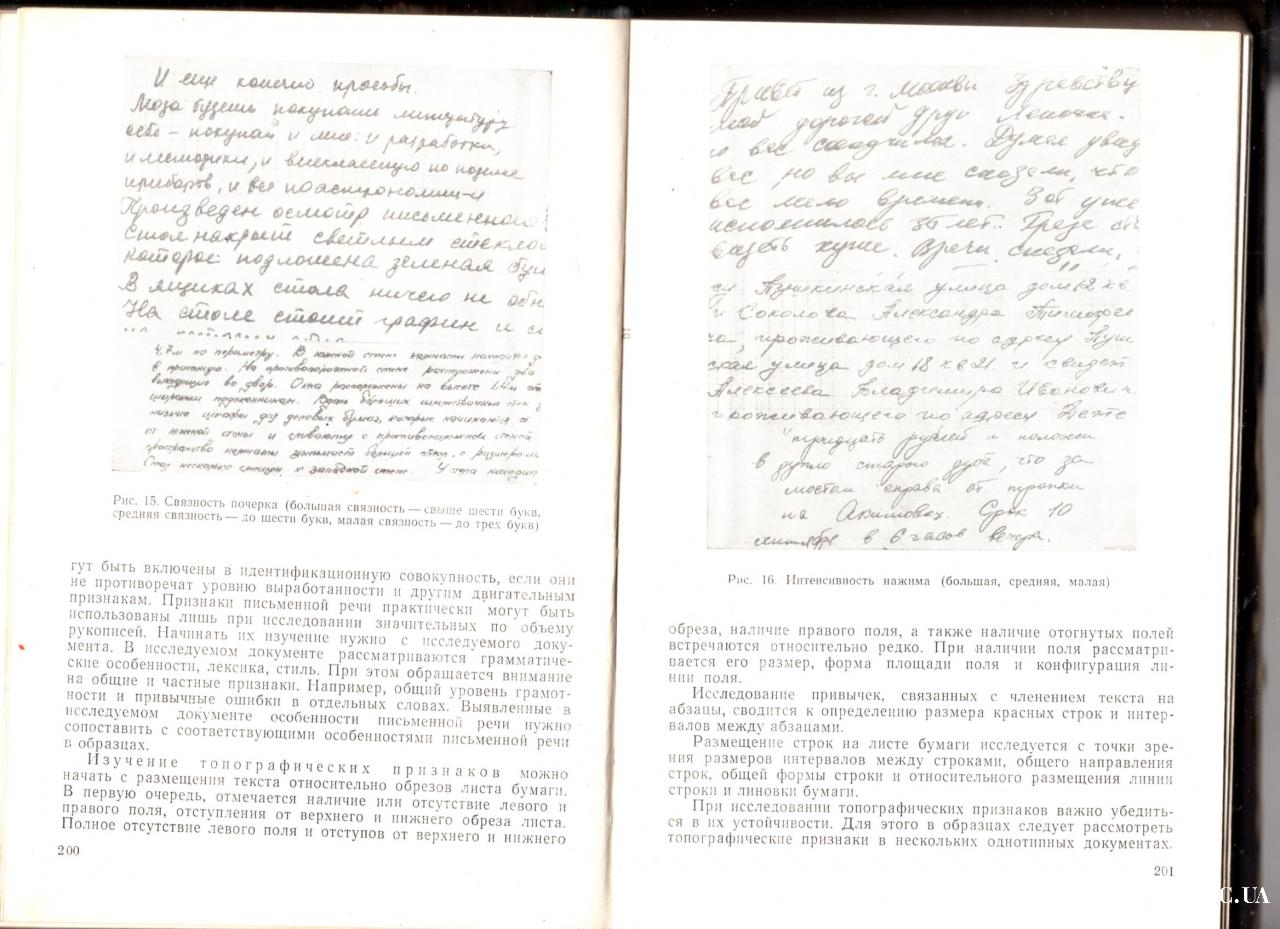 И еще конечно просьбы.
будешь покупать литературу
себе - покупай и мне: и разработки,
и методики, и внеклассную по
приборов, и все по астрономии
Произведен осмотр письменного
Стол накрыт светлым стекло
которое подложена зеленая бум
В ящиках стола ничего не обн
На столе стоит графин и
4,7м по периметру. В южной стене комнаты находится
в прихожую. На противоположной стене расположены два
выходящие во двор. Окна расположены на высоте 1,4м от
широкими подоконниками. Вдоль больших
низкие шкафы для деловых бумаг, которые начинаются
от южной стены и с противоположной стеной
пространство комнаты занимает большой стол, с размерами
Стол несколько смещен к западной стене. У стола находит
Рис. 15. Связность почерка (большая связность — свыше шести букв,
средняя связность — до шести букв, малая связность — до трех букв)
гут быть включены в идентификационную совокупность, если они
не противоречат уровню выработанности и другим двигательным
признакам. Признаки письменной речи практически могут быть
использованы лишь при исследовании значительных по объему
рукописей. Начинать их изучение нужно с исследуемого доку-
мента. В исследуемом документе рассматриваются грамматиче-
ские особенности, лексика, стиль. При этом обращается внимание
на общие и частные признаки. Например, общий уровень грамот-
ности и привычные ошибки в отдельных словах. Выявленные в
исследуемом документе особенности письменной речи нужно
сопоставить с соответствующими особенностями письменной речи
в образцах.
Изучение топографических признаков можно
начать с размещения текста относительно обрезов листа бумаги.
В первую очередь, отмечается наличие или отсутствие левого и
правого поля, отступления от верхнего и нижнего обреза листа.
Полное отсутствие левого поля и отступов от верхнего и нижнего
200
Привет из г. Москвы Здравству
мой дорогой друг Леночка.
вас соскучился. Думал увид
вас, но вы мне сказали, что
вас мало времени. Вот уже
исполнилось 36 лет.
видеть хуже. Врачи сказали,
Пушкинская улица дом 12 кв
и Соколова Александра Тимофее
ча, проживающего по адресу Пуш
ская улица дом 18 кв 21. и свидет
Алексеева Владимира Иванович
проживающего по адресу
тридцать рублей и положи
в дупло старого дуба, что за
мостом справа от тропки
на Акимовку. Срок 10
сентября в 6 часов вечера.
Рис. 16. Интенсивность нажима (большая, средняя, малая)
обреза, наличие правого поля, а также наличие отогнутых полей
встречаются относительно редко. При наличии поля рассматри-
вается его размер, форма площади поля и конфигурация ли-
нии поля.
Исследование привычек, связанных с членением текста на
абзацы, сводится к определению размера красных строк и интер-
валов между абзацами.
Размещение строк на листе бумаги исследуется с точки зре-
ния размеров интервалов между строками, общего направления
строк, общей формы строки и относительного размещения линии
строки и линовки бумаги.
При исследовании топографических признаков важно убедить-
ся в их устойчивости. Для этого в образцах следует рассмотреть
топографические признаки в нескольких однотипных документах.
201
C.UA